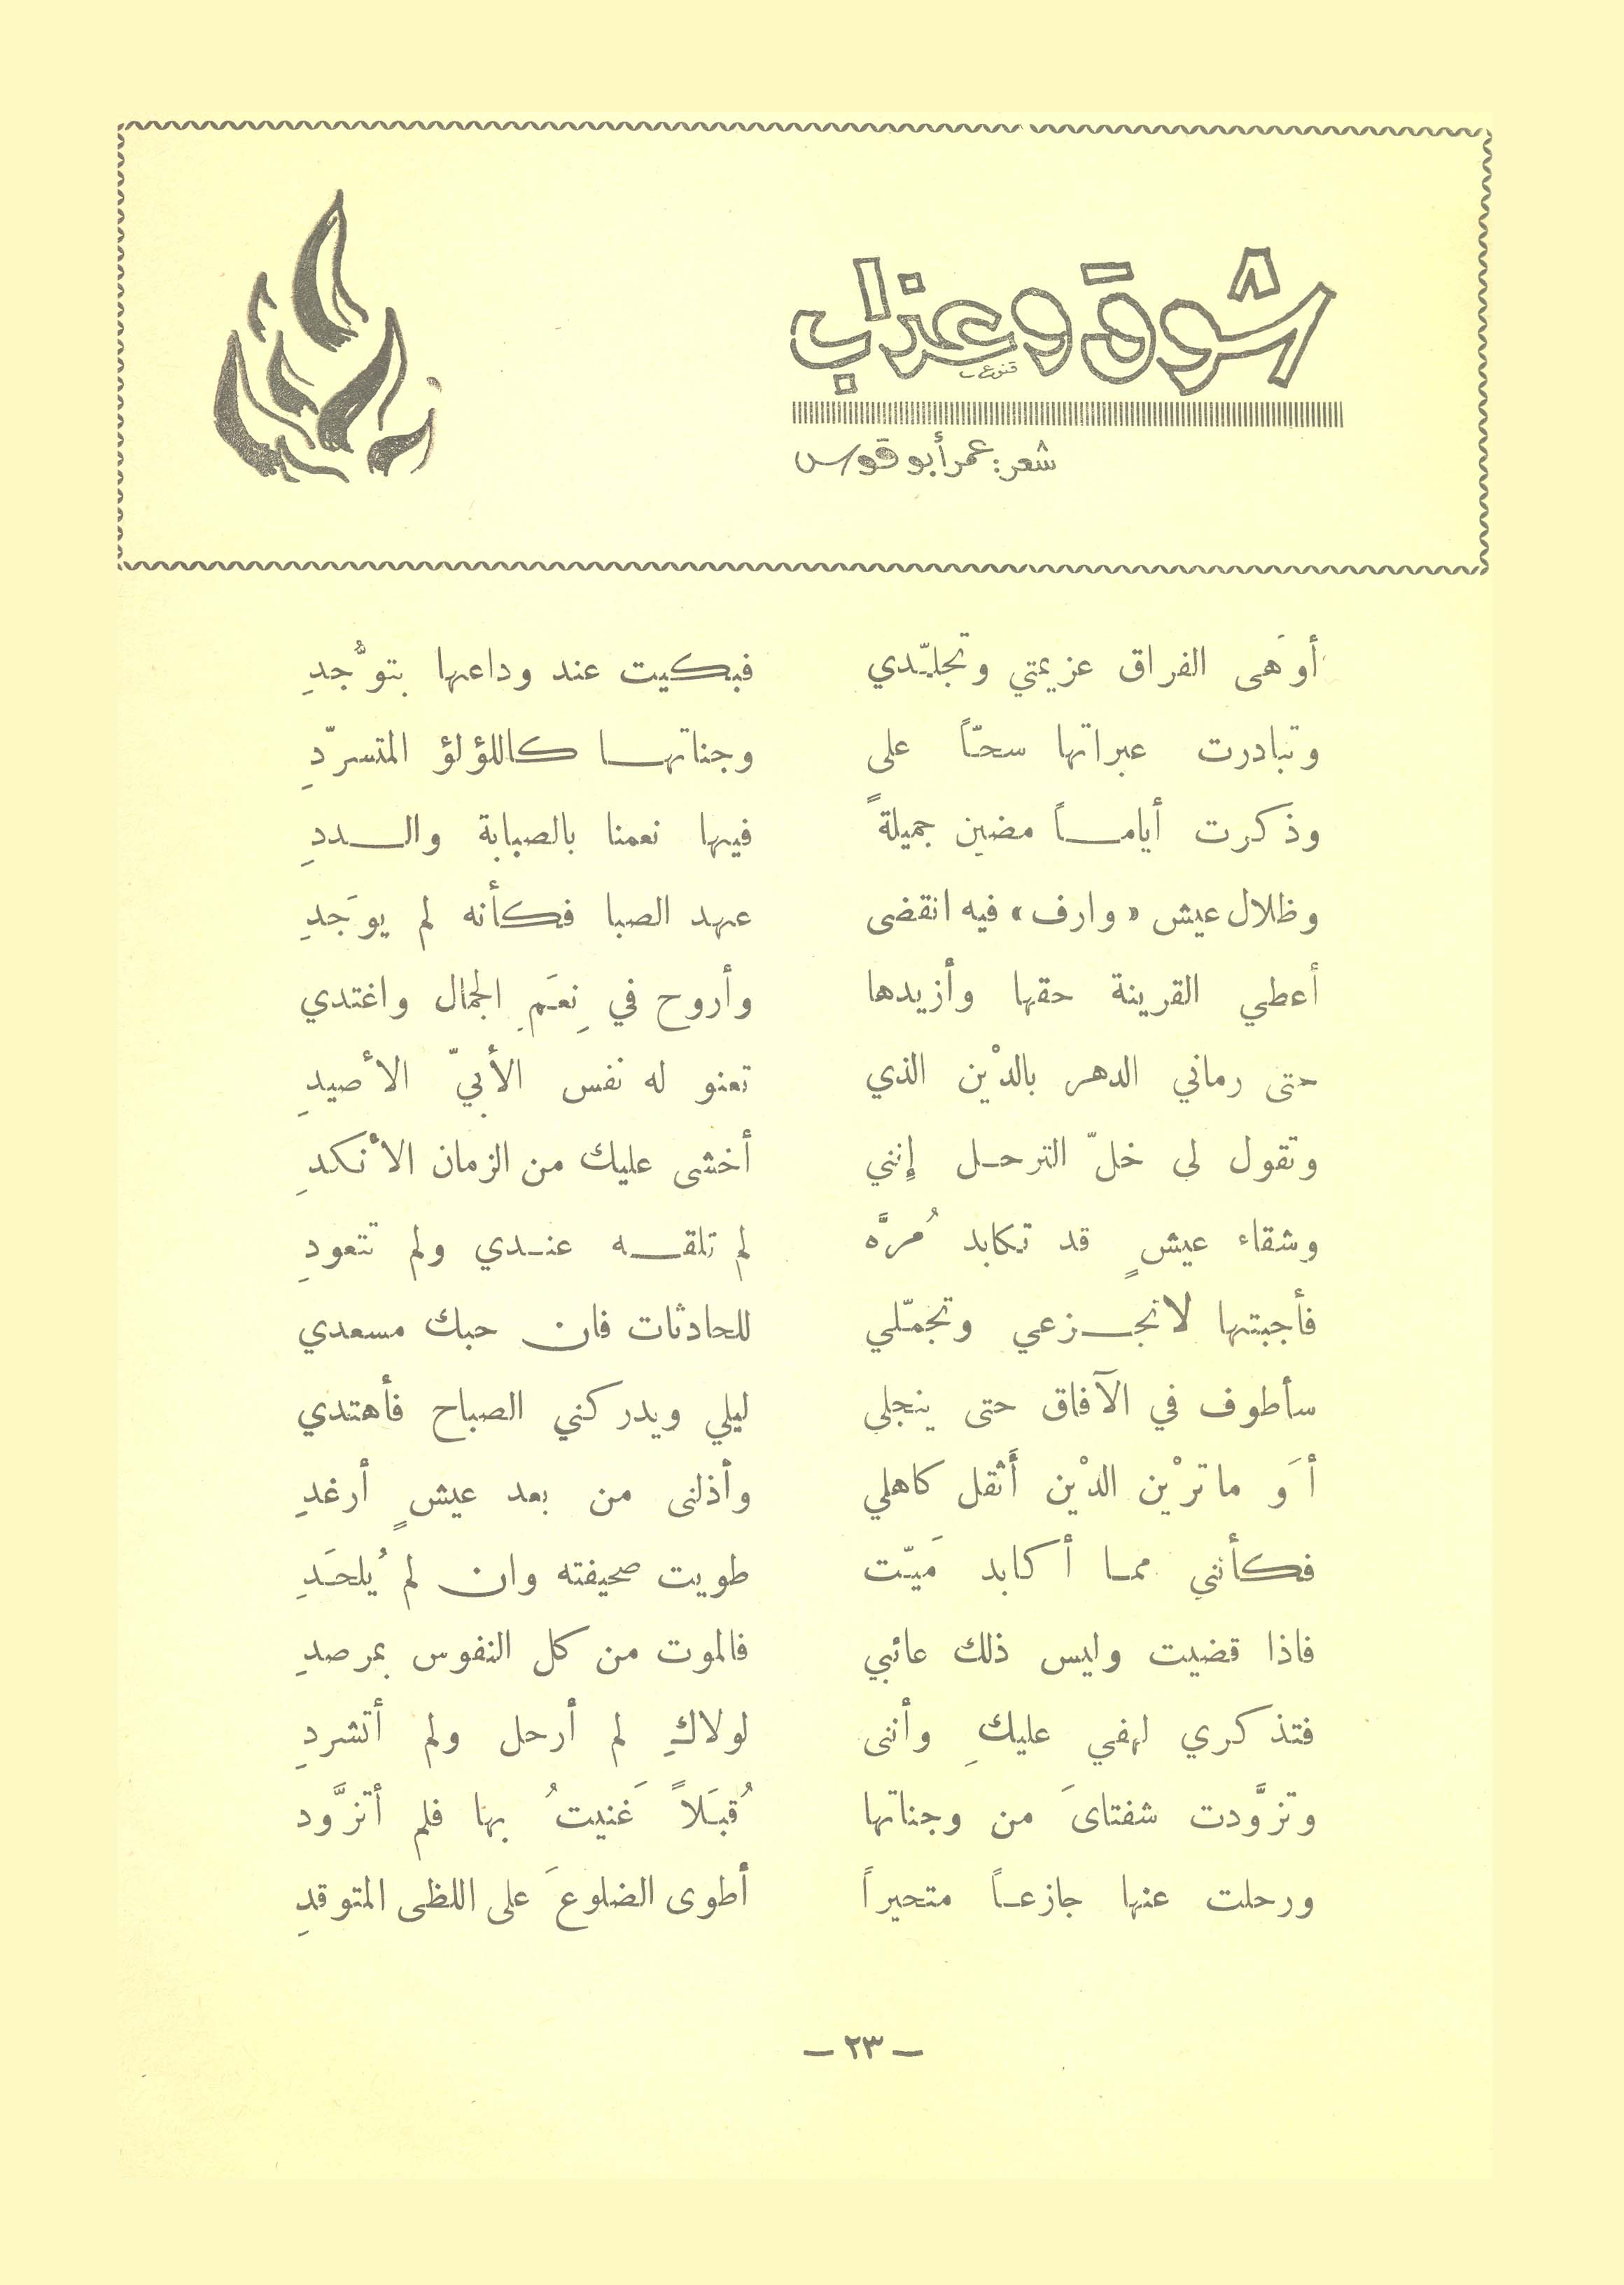 شوق وعذاب
شعر: عمر أبو قوس
أوَهى الفراق عزيمتي وتجلّدي فبكيت عند وداعها بتوجُّدِ
وتبادرت عبراتها سحّاً على وجناتهـا كاللؤلؤ المتسرّدِ
وذكرت أيامـاً مضين جميلةً فيها نعمنا بالصبابة والـددِ
وظلال عيش «وارف» فيه انقضى عهد الصبا فكأنه لم يوجَدِ
أعطي القرينة حقها وأزيدها وأروح في نِعَمِ الجمال واغتدي
حتى رماني الدهر بالدْين الذي تعنو له نفس الأبيّ الأصيدِ
وتقول لى خلّ الترحـل إنني أخشى عليك من الزمان الأنكدِ
وشقاء عيشٍ قد تكابد مُرَّه لم تلقـه عنـدي ولم تتعودِ
فأجبتها لاتجـزعي وتجمّلي للحادثات فان حبك مسعدي
سأطوف في الآفاق حتى ينجلى ليلي ويدركني الصباح فأهتدي
أوَ ماترْين الدْين أَثقل كاهلي وأذلنى من بعد عيشٍ أرغدِ
فكأنني ممـا أكابد مَيّت طويت صحيفته وان لم يُلحَدِ
فاذا قضيت وليس ذلك عائبي فالموت من كل النفوس بمرصدِ
فتذكري لهفي عليكِ وأننى لولاكِ لم أرحل ولم أتشردِ
وتزوَّدت شفتاىَ من وجناتها قُبَلاً غَنيتُ بها فلم أتزوَّد
ورحلت عنها جازعـاً متحيراً أطوى الضلوعَ على اللظى المتوقدِ
– ٢٣ –